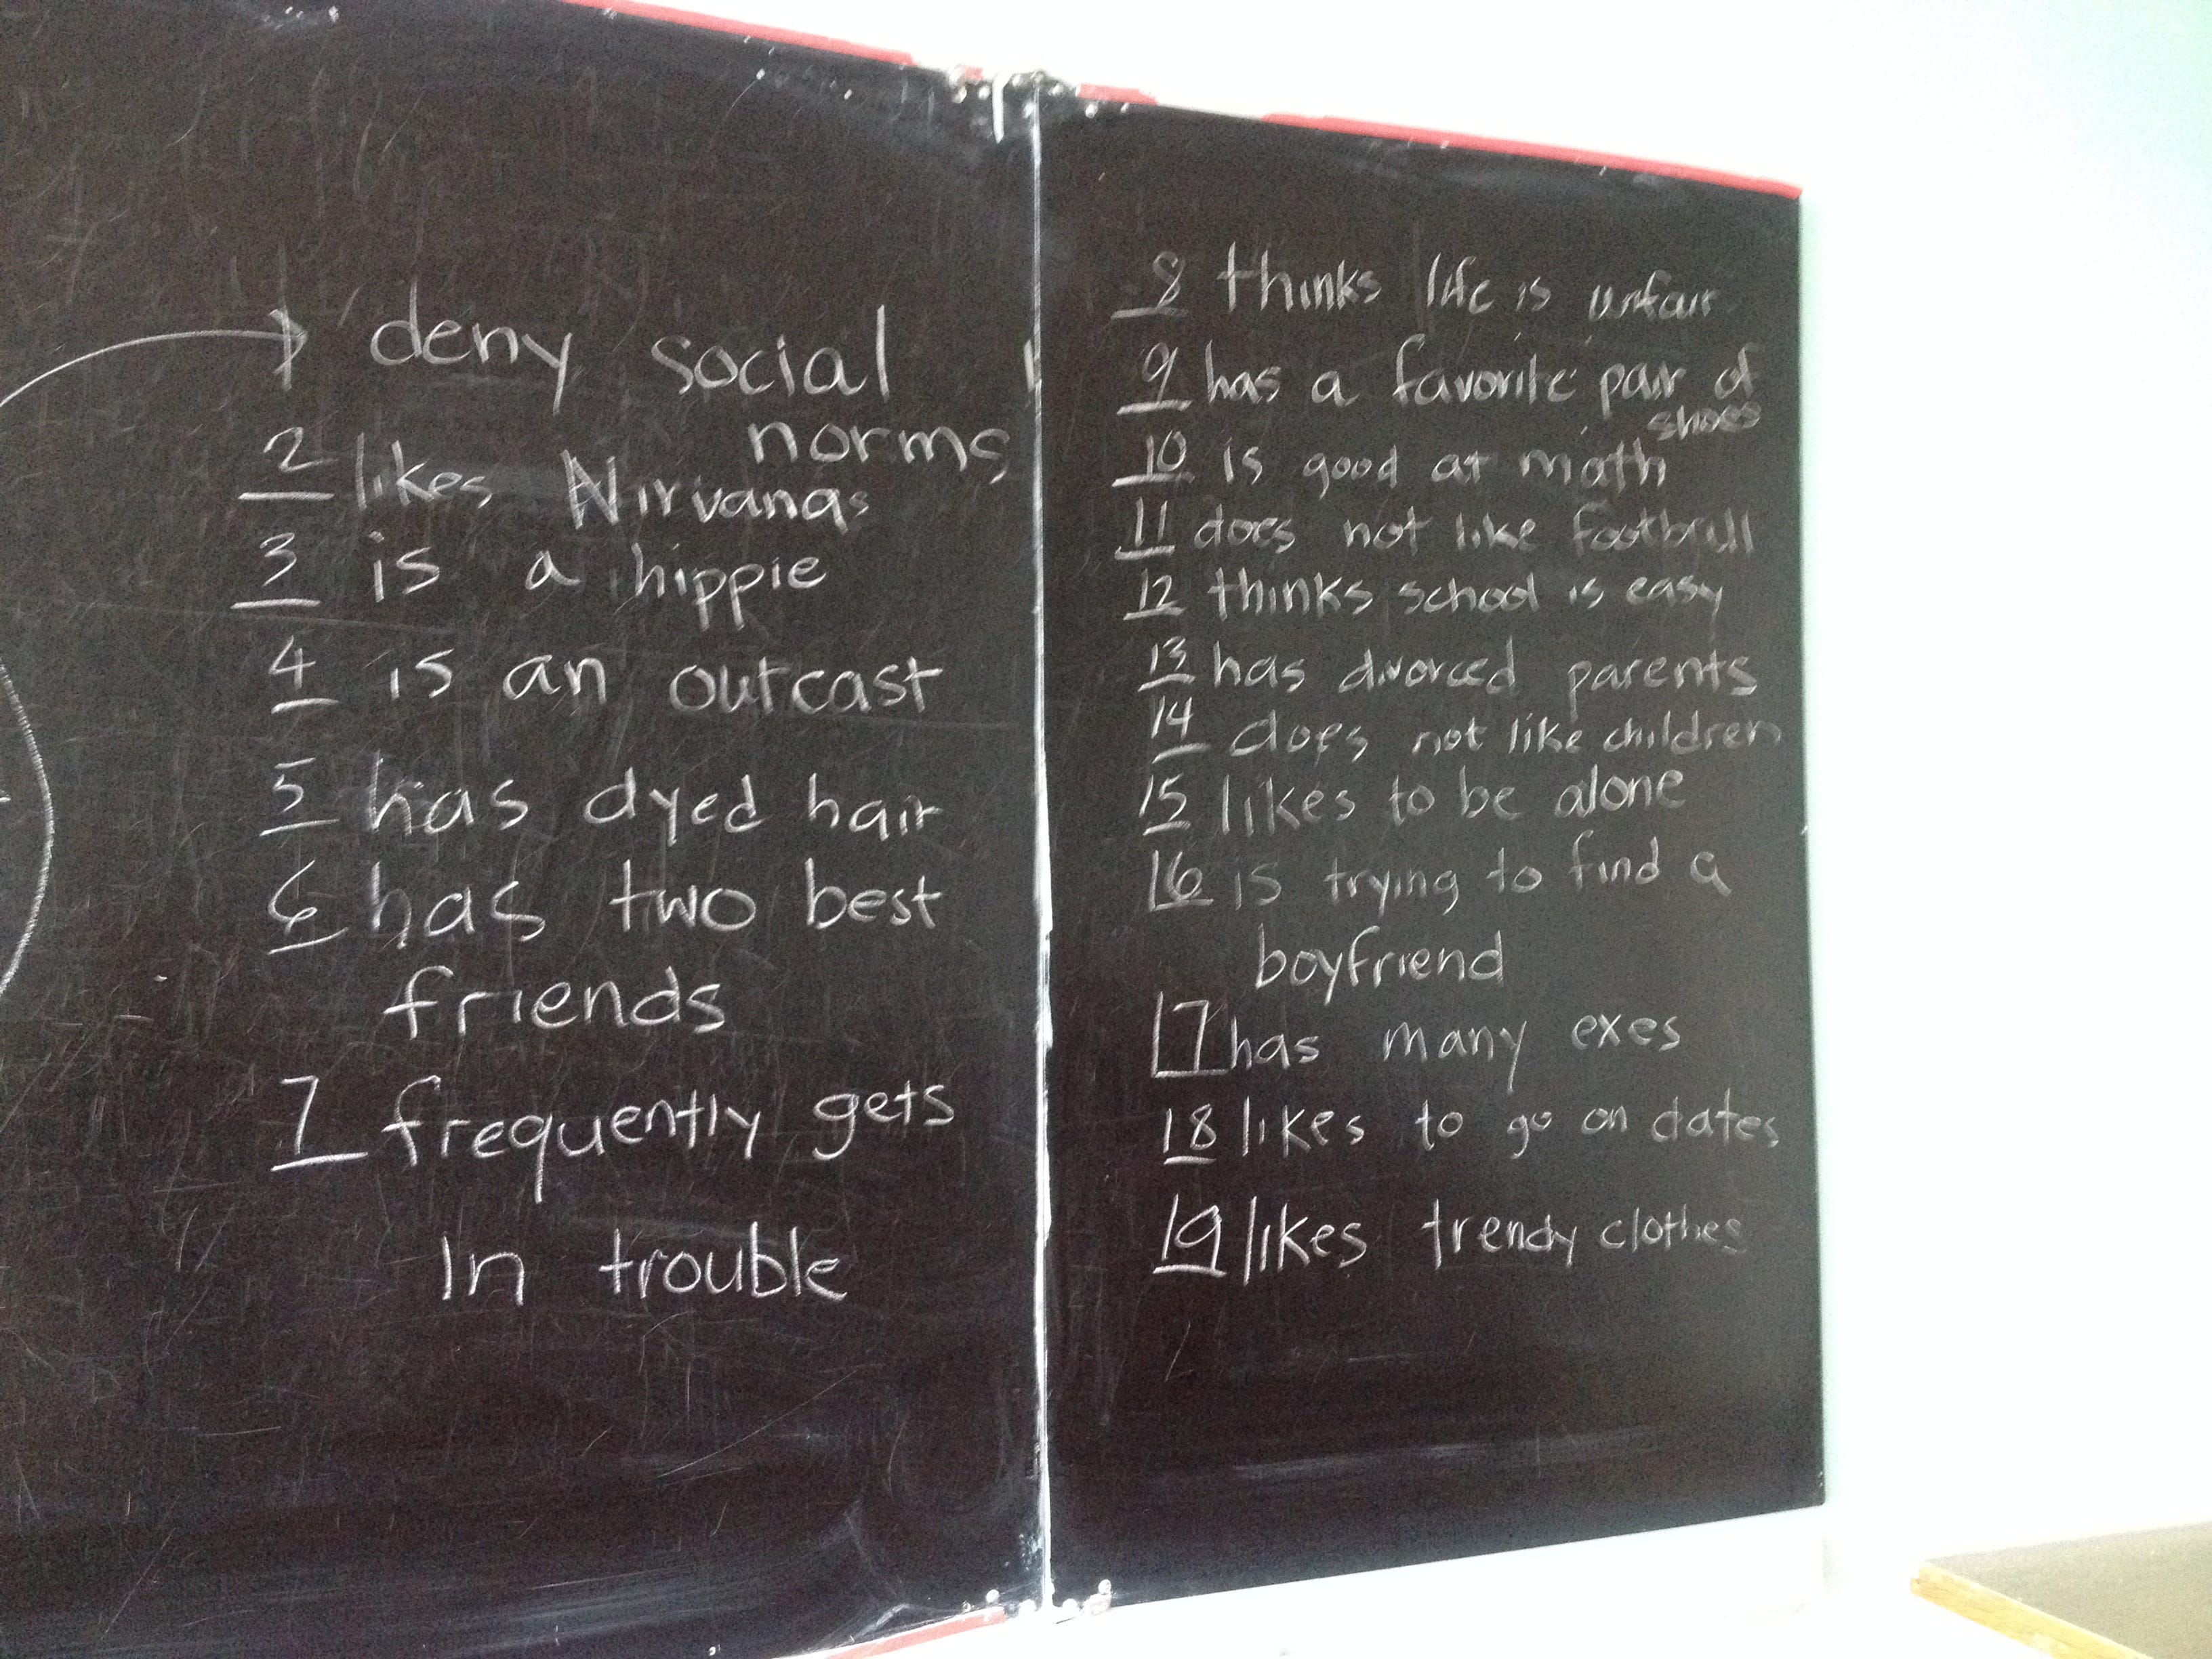 1 deny social
norms
2 likes Nirvanas
3 is a hippie
4 is an outcast
5 has dyed hair
6 has two best
friends
7 frequently gets
in trouble
8 thinks life is unfair
9 has a favorite pair of
shoes
10 is good at math
11 does not like football
12 thinks school is easy
13 has divorced parents
14 does not like children
15 likes to be alone
16 is trying to find a
boyfriend
17 has many exes
18 likes to go on dates
19 likes trendy clothes